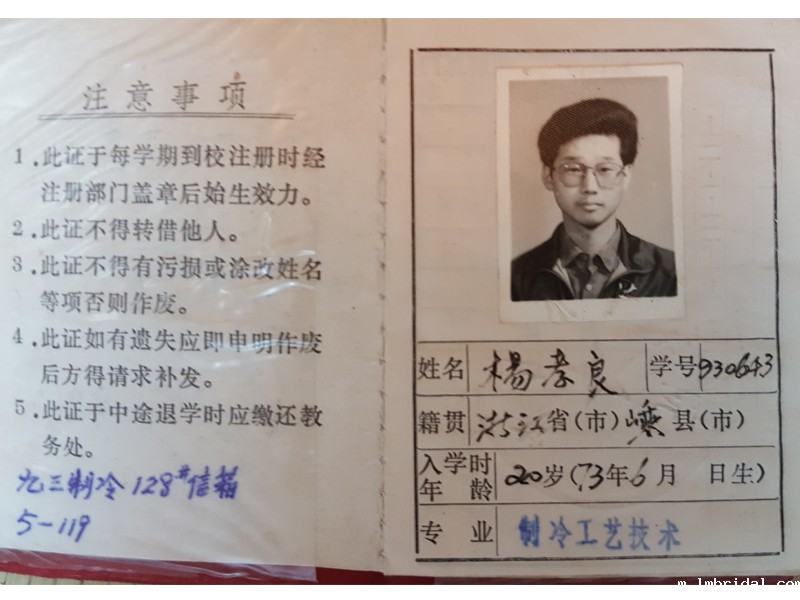 注意事项
1.此证于每学期到校注册时经
注册部门盖章后始生效力。
2.此证不得转借他人。
3.此证不得有污损或涂改姓名
等项否则作废。
4.此证如有遗失应即申明作废
后方得请求补发。
5.此证于中途退学时应缴还教
务处。
九三制冷128#信箱
5-119
姓名 楊孝良 学号 930643
籍贯 浙江省(市)嵊县(市)
入学时年龄 20岁(73年6月 日生)
专业 制冷工艺技术
m.lmbridal.com